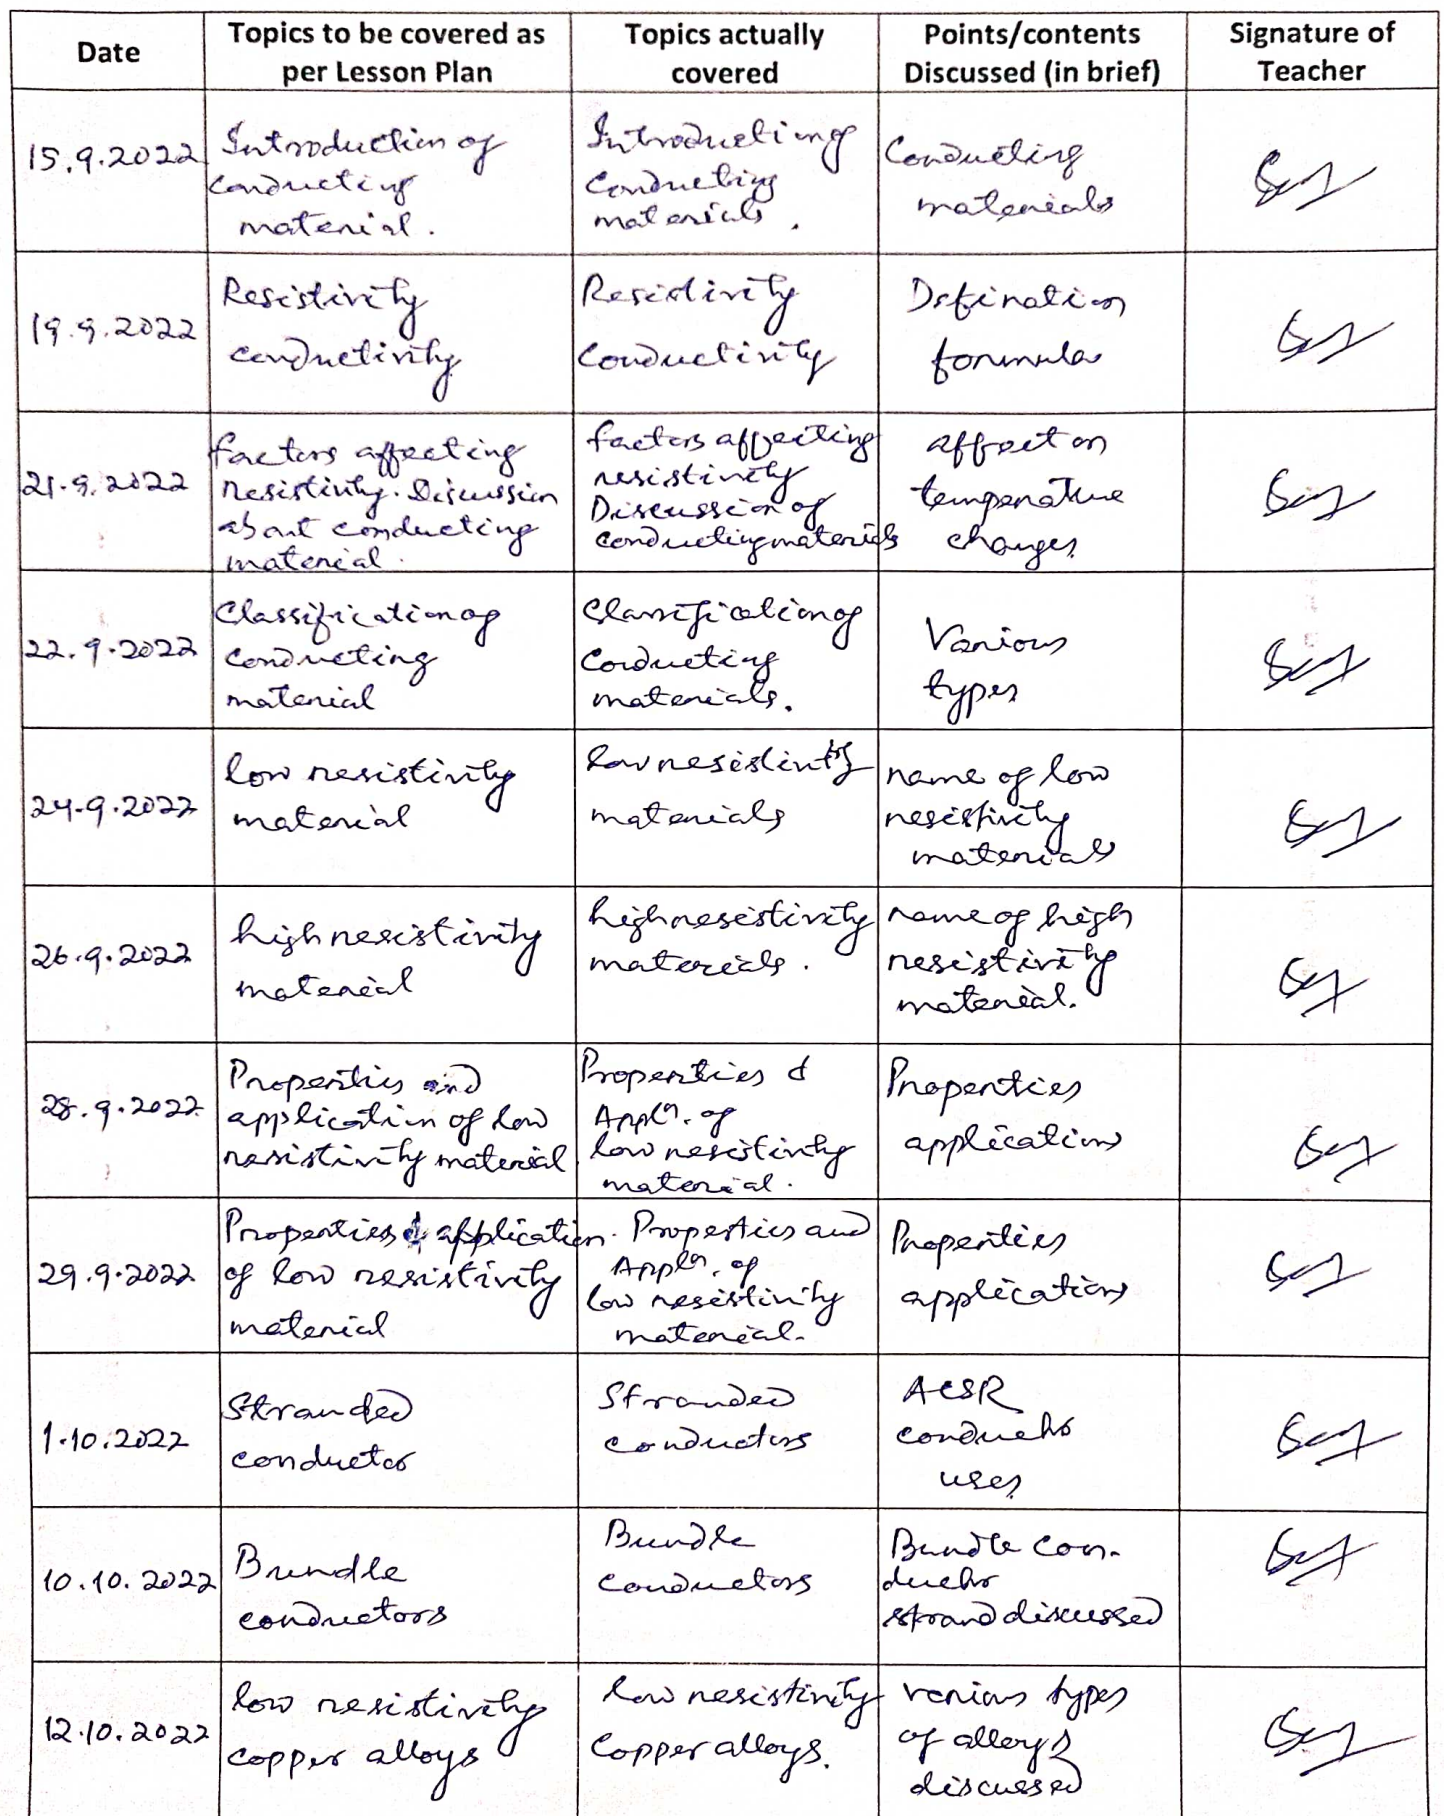 Date
Topics to be covered as
per Lesson Plan
Topics actually
covered
Points/contents
Discussed (in brief)
Signature of
Teacher
15.9.2022
Introduction of
conducting
material.
Introduction of
Conducting
materials.
Conducting
materials
19.9.2022
Resistivity
conductivity
Resistivity
Conductivity
Defination
formula
21.9.2022
factors affecting
resistivity. Discussion
about conducting
material.
factors affecting
resistivity
Discussion of
conducting materials
affect on
temperature
changes
22.9.2022
Classification of
conducting
material
Classification of
Conducting
materials.
Various
types
24.9.2022
low resistivity
material
low resistivity
materials
name of low
resistivity
materials
26.9.2022
high resistivity
material
high resistivity
materials.
name of high
resistivity
material.
28.9.2022
Properties and
application of low
resistivity material
Properties &
Appln. of
low resistivity
material.
Properties
applications
29.9.2022
Properties & application
of low resistivity
material
Properties and
Appln. of
low resistivity
material.
Properties
applications
1.10.2022
Stranded
conductor
Stranded
conductors
ACSR
conductor
uses
10.10.2022
Bundle
conductors
Bundle
conductors
Bundle con-
ductor
strand discussed
12.10.2022
low resistivity
copper alloys
low resistivity
Copper alloys.
various types
of alloys
discussed